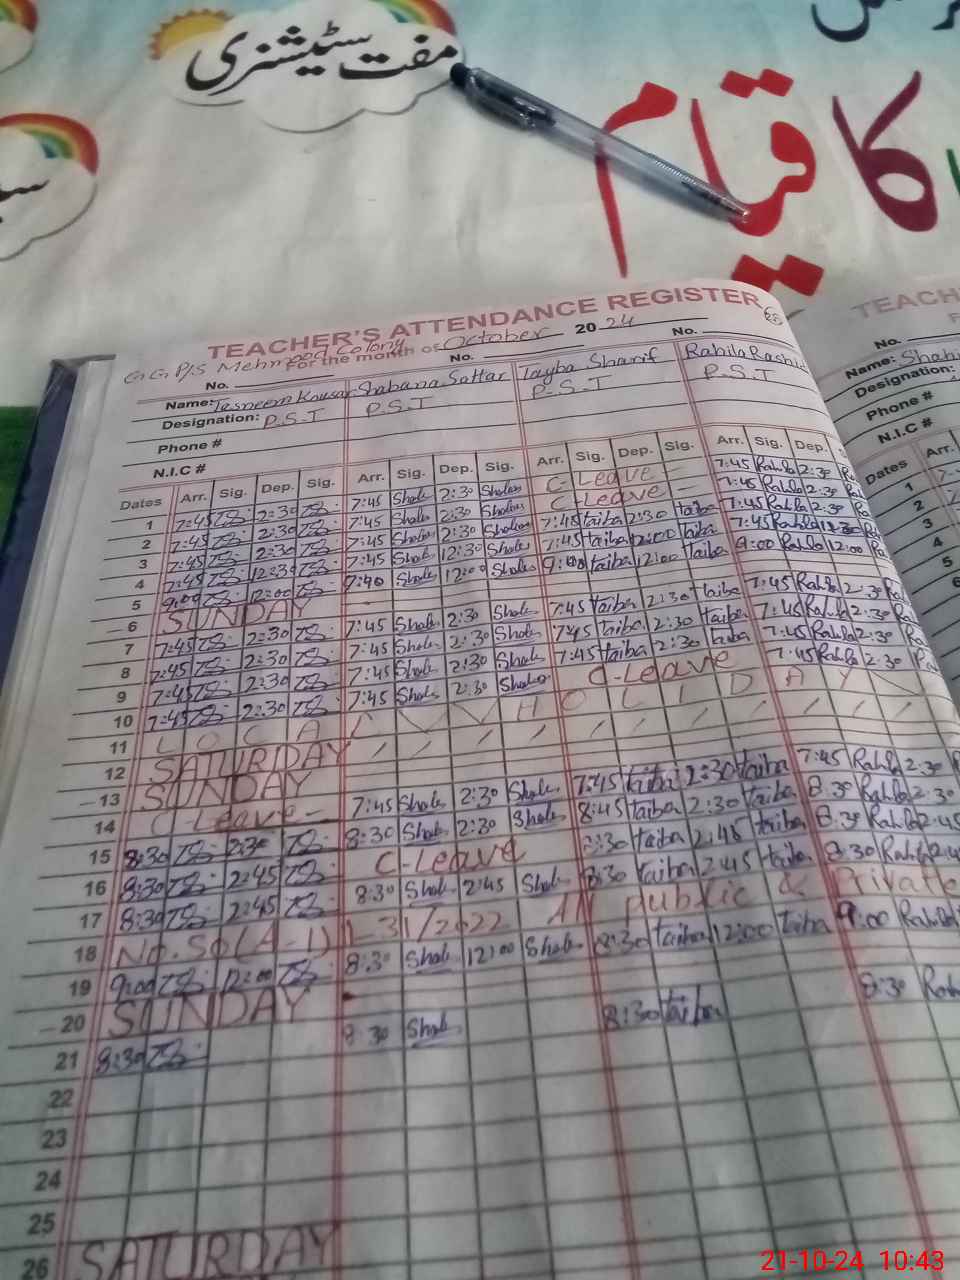 مفت سٹیشنری
کا قیام
TEACHER'S ATTENDANCE REGISTER
G.G.P/S Mehmood Colony For the month of October 2024
No. No. No.
Name: Tasneem Kousar Shabana Sattar Tayba Sharif Rahila Rashi
Designation: P.S.T P.S.T P.S.T P.S.T
Phone #
N.I.C #
Dates Arr. Sig. Dep. Sig. Arr. Sig. Dep. Sig. Arr. Sig. Dep. Sig. Arr. Sig. Dep.
1 7:45 2:30 7:45 Shab 2:30 Shab C-Leave 7:45 Rahila 2:30
2 7:45 2:30 7:45 Shab 2:30 Shab C-Leave 7:45 Rahila 2:30
3 7:45 2:30 7:45 Shab 2:30 Shab 7:45 taiba 2:30 taiba 7:45 Rahila 2:30
4 7:45 12:30 7:45 Shab 12:30 Shab 7:45 taiba 12:00 taiba 7:45 Rahila 12:30
5 9:00 12:00 7:40 Shab 12:00 Shab 9:00 taiba 12:00 taiba 9:00 Rahila 12:00
6 SUNDAY
7 7:45 2:30 7:45 Shab 2:30 Shab 7:45 taiba 2:30 taiba 7:45 Rahila 2:30
8 7:45 2:30 7:45 Shab 2:30 Shab 7:45 taiba 2:30 taiba 7:45 Rahila 2:30
9 7:45 2:30 7:45 Shab 2:30 Shab 7:45 taiba 2:30 taiba 7:45 Rahila 2:30
10 7:45 2:30 7:45 Shab 2:30 Shab C-Leave 7:45 Rahila 2:30
11 LOCAL HOLIDAY
12 SATURDAY
13 SUNDAY
14 C-Leave 7:45 Shab 2:30 Shab 7:45 taiba 2:30 taiba 7:45 Rahila 2:30
15 8:30 2:30 8:30 Shab 2:30 Shab 8:45 taiba 2:30 taiba 8:30 Rahila 2:30
16 8:30 2:45 C-Leave 8:30 taiba 2:45 taiba 8:30 Rahila 2:45
17 8:30 2:45 8:30 Shab 2:45 Shab 8:30 taiba 2:45 taiba 8:30 Rahila 2:4
18 No. SO(A-1) 1-31/2022 All public & Private
19 9:00 12:00 8:30 Shab 12:00 Shab 8:30 taiba 12:00 taiba 9:00 Rahila
20 SUNDAY
21 8:30 8:30 Shab 8:30 taiba 8:30 Rah
22
23
24
25
26 SATURDAY
TEACH
No.
Name: Shab
Designation:
Phone #
N.I.C #
Dates Arr.
1
2
3
4
5
6
21-10-24 10:43